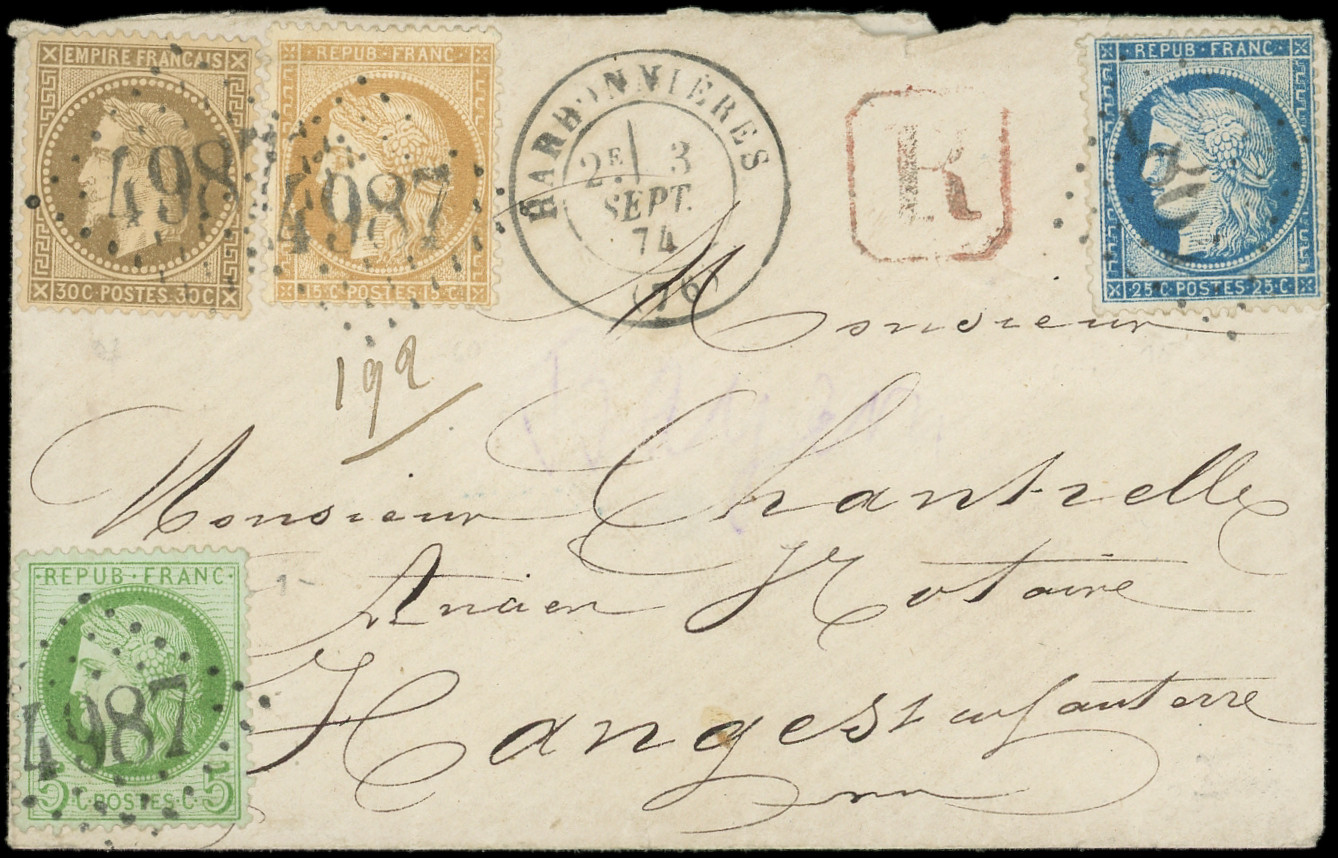 EMPIRE FRANÇAIS
30C·POSTES·30C
498
REPUB·FRANC
15·C·POSTES·15·C
4987
HARBONNIÈRES
2E 3
SEPT.
74
(76)
R
REPUB·FRANC
25·C·POSTES·25·C
192
Monsieur
Monsieur Chantrelle
Ancien Notaire
Hangest en Santerre
REPUB·FRANC
4987
5·C·POSTES·C·5